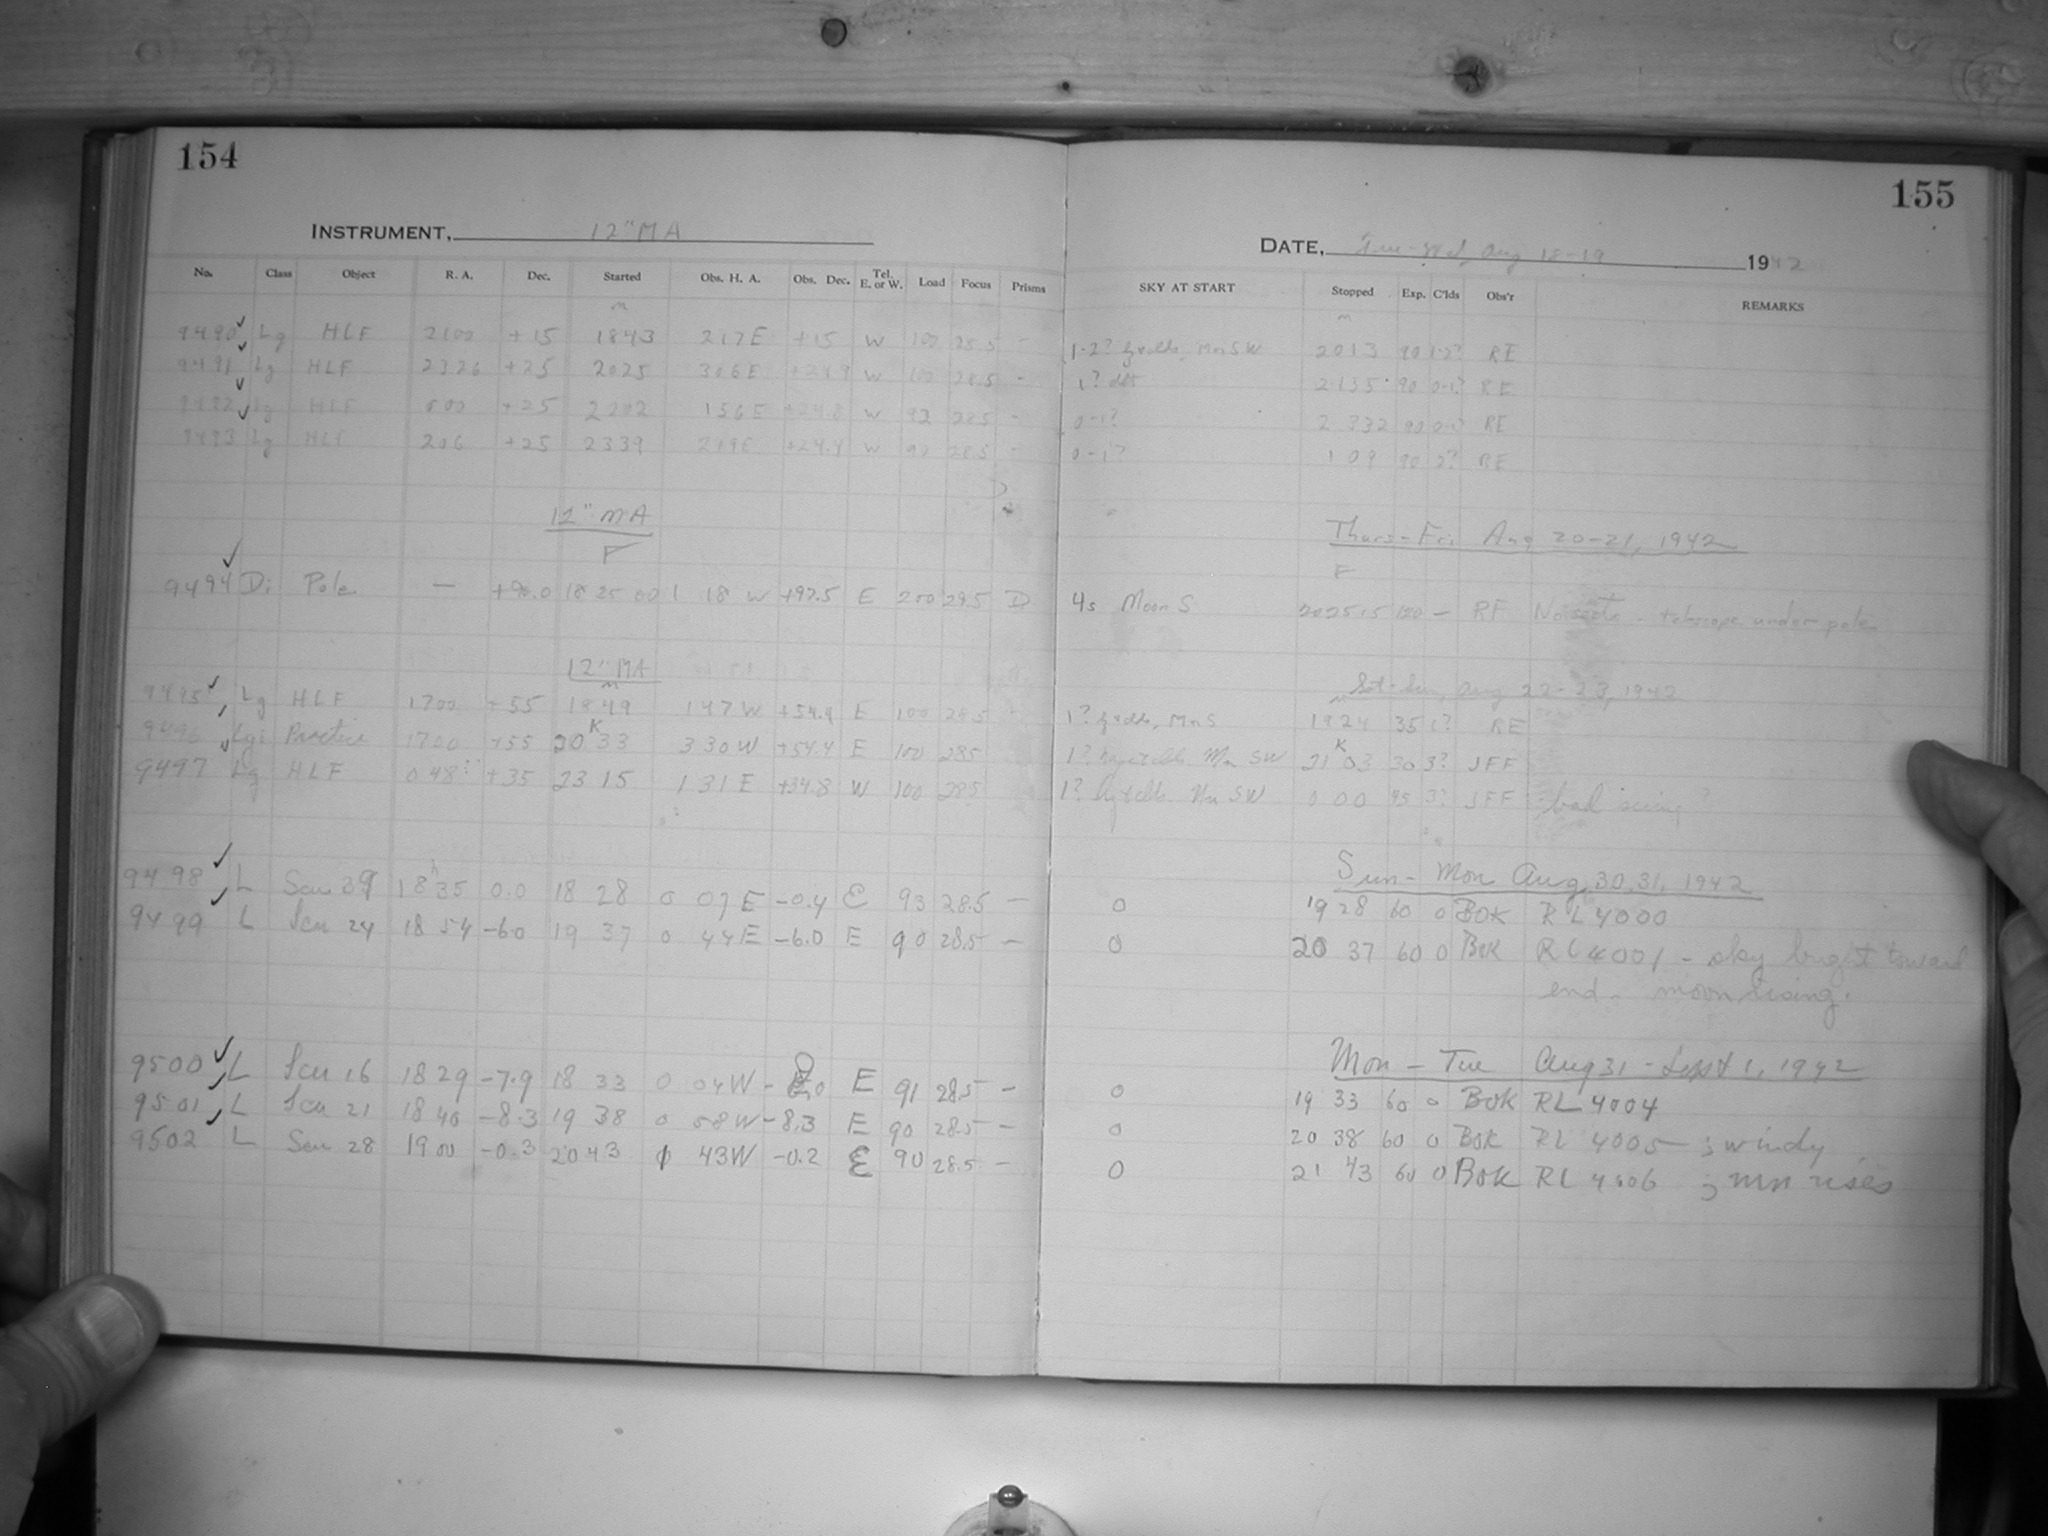 154
INSTRUMENT, 12" MA
No. Class Object R. A. Dec. Started Obs. H. A. Obs. Dec. Tel. E. or W. Load Focus Prisms
9490 Lg HLF 2100 +15 1843 217E +15 W 100 28.5 -
9491 Lg HLF 2326 +25 2025 306E W 100 28.5 -
9492 Lg HLF +25 2202 156E +24.8 W 92 28.5 -
9493 Lg HLF 206 +25 2339 +24.9 W 90 28.5 -
12" MA
F
9494 Di Pole — +90.0 18 25 00 1 18 W +97.5 E 200 29.5 D
12" MA
9495 Lg HLF 1700 +55 1849 147W +54.9 E 100 28.5
9496 Practice 1700 +55 20 33 330W +54.4 E 100 285
9497 Lg HLF 048 +35 23 15 131E +34.8 W 100 285
9498 L 18 35 0.0 18 28 0 07E -0.4 E 93 28.5 —
9499 L Scu 24 18 54 -6.0 19 37 0 44E -6.0 E 90 28.5 —
9500 L Scu 16 18 29 -7.9 18 33 0 04W E 91 28.5 —
9501 L Scu 21 18 40 -8.3 19 38 0 58W -8.3 E 90 28.5 —
9502 L Scu 28 19 00 -0.3 20 43 43W -0.2 E 90 28.5 —
155
DATE, Tue-Wed, Aug 18-19 1942
SKY AT START Stopped Exp. C'lds Obs'r REMARKS
1-2? Mn SW 2013 90 1-2? RE
1? 2135 90 0-1? RE
0-1? 2332 90 0-1? RE
0-1? 109 90 2? RE
Thurs-Fri Aug 20-21, 1942
F
4s Moon S 202515 120 — RF telescope under pole
Sat-Sun, Aug 22-23, 1942
1? Mn S 1924 35 1? RE
1? Mn SW 21 03 30 3? JFF
1? Mn SW 0 00 45 3? JFF bad seeing?
Sun - Mon Aug 30, 31, 1942
0 19 28 60 0 BOK RL 4000
0 20 37 60 0 BOK RL 4001 - sky bright toward
end - moon rising.
Mon - Tue Aug 31 - Sept 1, 1942
0 19 33 60 0 BOK RL 4004
0 20 38 60 0 BOK RL 4005 ; windy
0 21 43 60 0 BOK RL 4006 ; mn rises